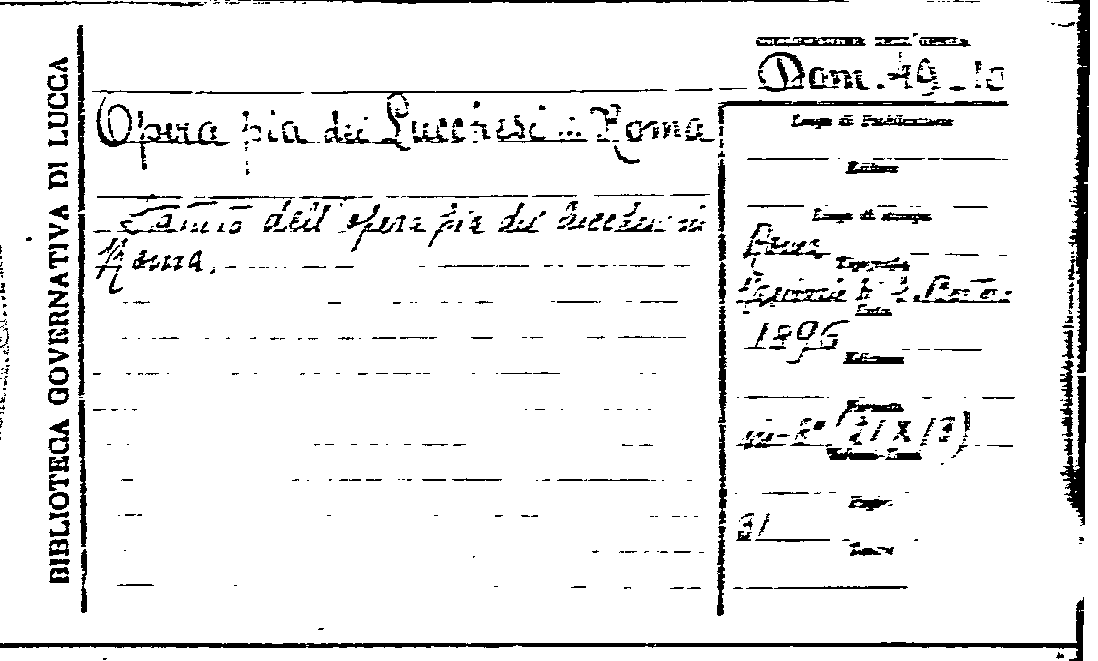 BIBLIOTECA GOVERNATIVA DI LUCCA
Dom. 49-10
Opera pia dei Lucchesi in Roma
dell'opera pia dei Lucchesi in
Roma.
Luogo di Pubblicazione
Editore
Luogo di stampa
Roma
Tipografia
Data
1896
Edizione
Formato
in-8° (21 X 13)
Pagine
31